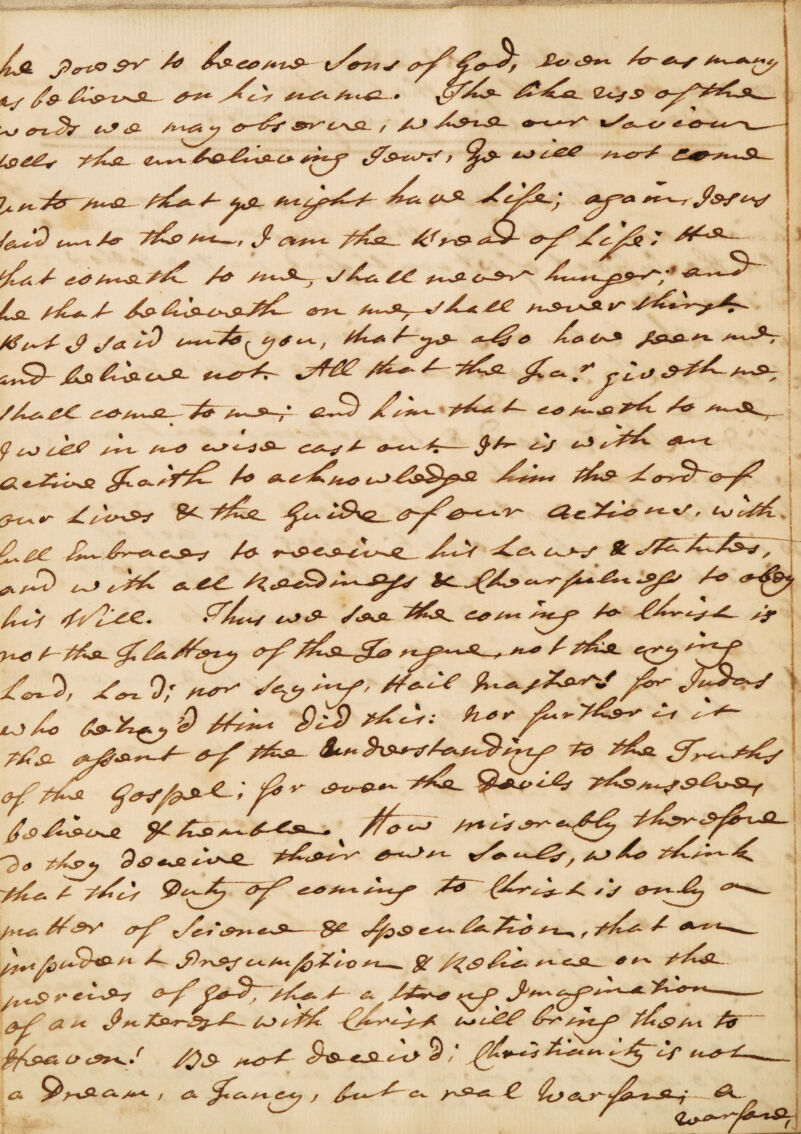 he Power to become Sons of God, even to as many
as believe on his name. The like use of the
words we may observe, where our Saviour
tells the unbelieving Jews, Ye will not come
unto me that ye might have Life; again, Jesus
said unto them, I am the Bread of Life; He
that cometh to me, shall never hunger; and
he that believeth on me, shall never thirst.
But I said unto you, that ye also have seen me,
and believe not. All that the Fa.r giveth me,
shall come to me; and him that cometh to me
I will in no wise cast out. It is with an
active Faith to acknowledge him the Lord of
our Lives & the Guide of our Actions, with
full Embraces to receive his Laws & Statutes,
and with all Readiness & Chearfulness to obey
his Will. Thus we see the coming to Christ is
not the Flattery of the Tongue, not the crying
Lord, Lord; nor saying, Hail Master! for Judas
who betray'd Him did this: Nor further is it
the assent of the Understanding to the Truths
of the Gospel; for even the Devils themselves
believe & tremble. How miserably therefore
do they deceive their own Souls, who think
that this Duty of coming to Christ is only a
matter of Science & Speculation, that an
impudent Presumption & Reliance on the
mercies of God, that a strong Imagination
of an Interest with Christ will bring them to
Heaven! Be not deceiv'd; Christianity is not
a Dream, a Fancy, but a real Warfare; a
warfare,